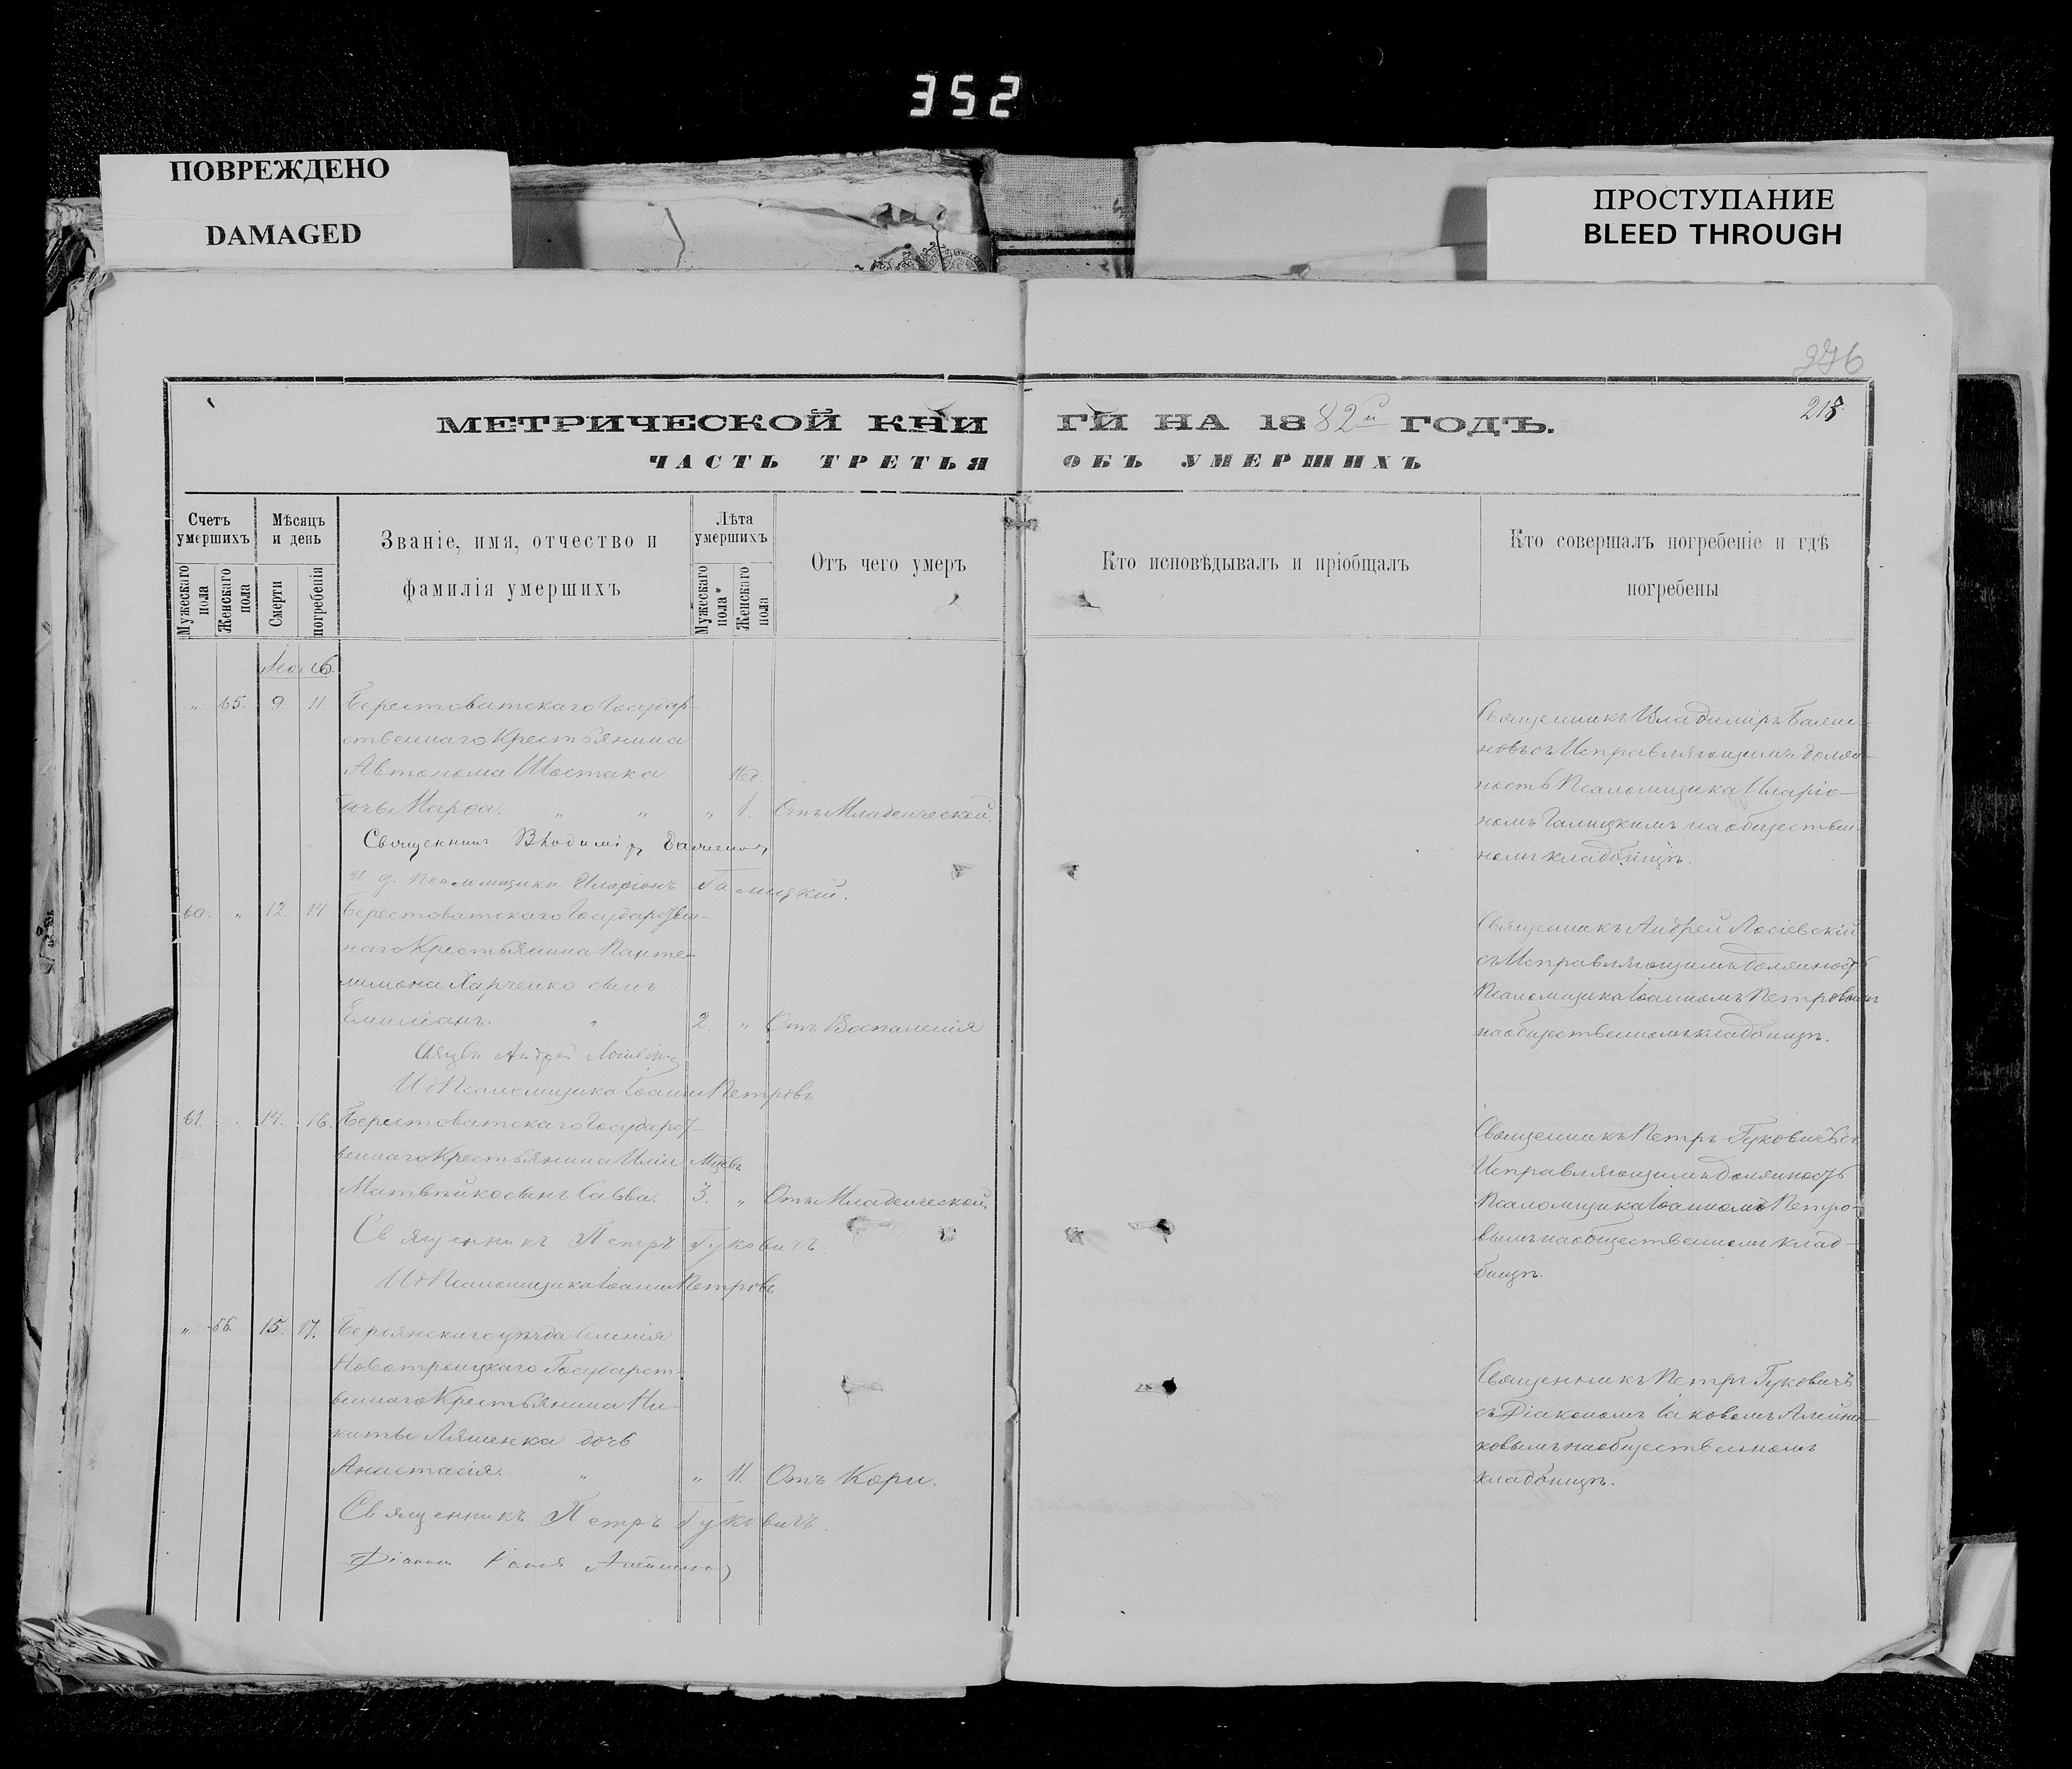 352
ПОВРЕЖДЕНО
DAMAGED
ПРОСТУПАНИЕ
BLEED THROUGH
МЕТРИЧЕСКОЙ КНИ
ГИ НА 1882й ГОДЪ.
218
ЧАСТЬ ТРЕТЬЯ
ОБЪ УМЕРШИХЪ
Счетъ умершихъ
Мужескаго пола
Женскаго пола
Мѣсяцъ и день
Смерти
погребенія
Званіе, имя, отчество и
фамилія умершихъ
Лѣта умершихъ
Мужескаго пола
Женскаго пола
Отъ чего умеръ
Кто исповѣдывалъ и пріобщалъ
Кто совершалъ погребеніе и гдѣ
погребены
„ 65. 9. 11. Берестоватскаго Государ-
ственнаго Крестьянина
Автонома Шостака Нед.
дочь Марѳа. „ „ „ 1. Отъ Младенческой.
Священникъ
и. д. псаломщика Иларіонъ Галицкій.
Священникъ Владиміръ
новъ съ Исправляющимъ долж-
ность Псаломщика Иларіо-
номъ Галицкимъ на обществен-
номъ кладбищѣ.
60. „ 12. 14. Берестоватскаго Государствен-
наго Крестьянина Панте-
лимона Харченко сынъ
Емиліанъ. „ 2. „ Отъ Воспаленія
Андрей
И д Псаломщика Іоаннъ Петровъ
Священникъ Андрей Лосіевскій
съ Исправляющимъ должность
Псаломщика Іоанномъ Петровымъ
на общественномъ кладбищѣ.
61. „ 14. 16. Берестоватскаго Государст-
веннаго Крестьянина Иліи Мцевъ
Матвѣйко сынъ Савва. 3. „ Отъ Младенческой.
Священникъ Петръ Гуковичъ.
И д Псаломщика Іоаннъ Петровъ
Священникъ Петръ Гуковичъ съ
Исправляющимъ должность
Псаломщика Іоанномъ Петро-
вымъ на общественномъ клад-
бищѣ.
„ 66. 15. 17. Бердянскаго уѣзда селенія
Новотроицкаго Государст-
веннаго Крестьянина Ни-
киты Ляшенка дочь
Анастасія. „ „ 11. Отъ Кори.
Священникъ Петръ Гуковичъ.
Діаконъ
Священникъ Петръ Гуковичъ
съ Діакономъ Іаковомъ Алейни-
ковымъ на общественномъ
кладбищѣ.